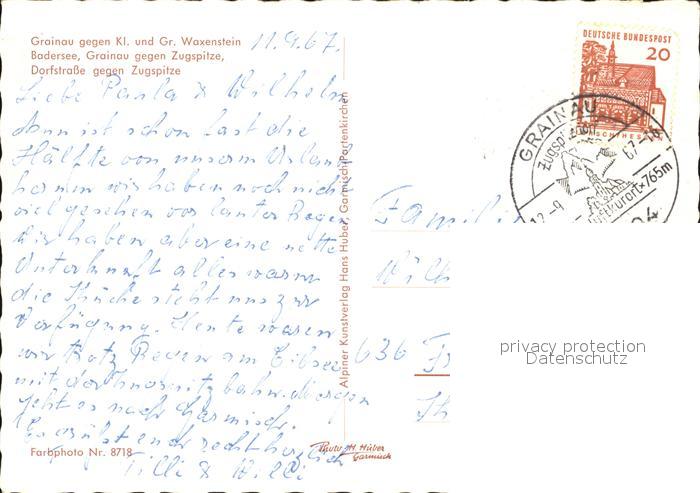 Grainau gegen Kl. und Gr. Waxenstein
Badersee, Grainau gegen Zugspitze,
Dorfstraße gegen Zugspitze
11.9.67.
Liebe Paula & Wilhelm
Nun ist schon fast die
Hälfte von unserm Urlaub
herum wir haben noch nicht
viel gesehen vor lauter Regen
Wir haben aber eine nette
Unterkunft alles warm
die Küche steht uns zur
Verfügung. Heute waren
wir trotz Regen am Eibsee
mit der
geht es nach Garmisch.
Es grüßt euch recht herzlich
Tilli & Willi
Farbphoto Nr. 8718
Photo H. Huber
Garmisch
Alpiner Kunstverlag Hans Huber, Garmisch-Partenkirchen
DEUTSCHE BUNDESPOST
20
GRAINAU
Zugspitzdorf
12.-9
67-18
Luftkurort×765m
Famili
636
privacy protection
Datenschutz